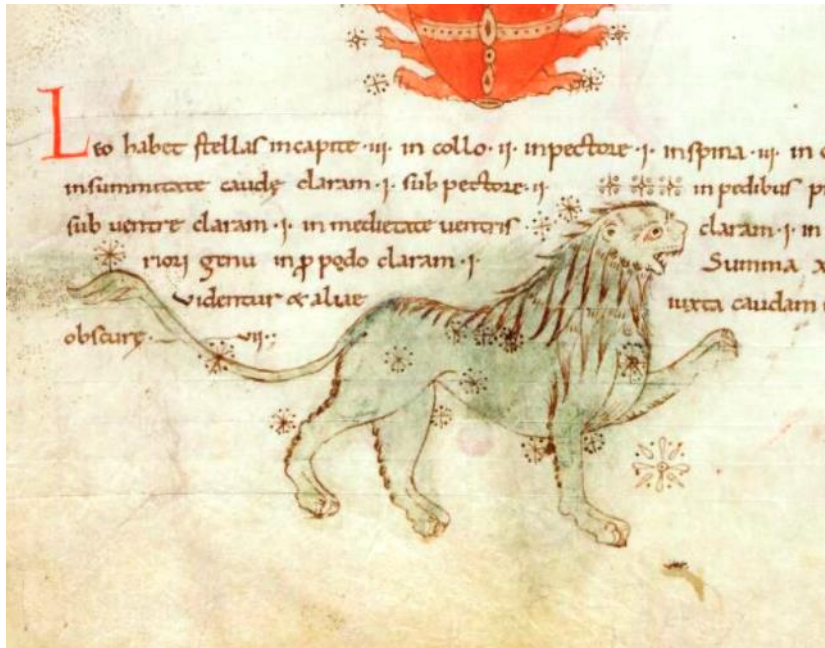 Leo habet stellas in capite ·iii· in collo ·ii· in pectore ·i· in spina ·iii· in
in summitate caudę claram ·i· sub pectore ·ii· in pedibus
sub uentre claram ·i· in medietate uentris claram ·i· in
riori genu in claram ·i· Summa
Videntur & aliae iuxta caudam
obscurę vii·;